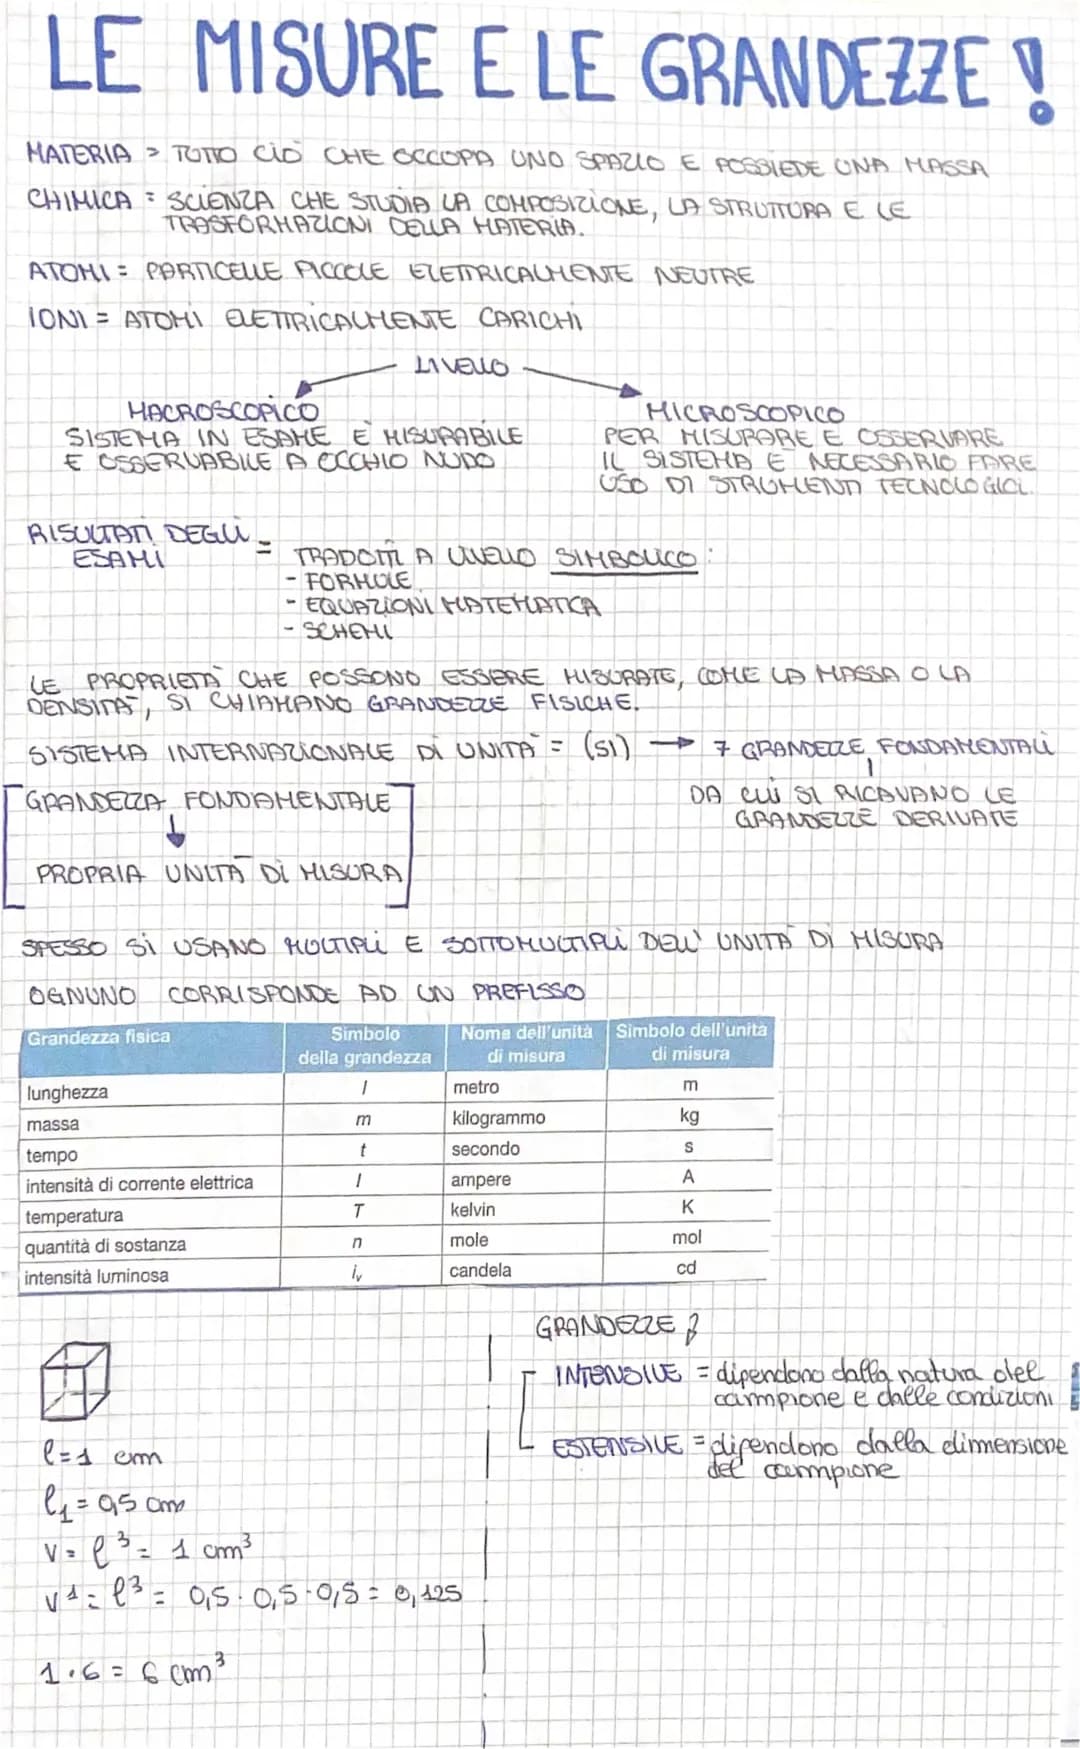 LE MISURE E LE GRANDEZZE!
MATERIA > TUTTO CIÒ CHE OCCUPA UNO SPAZIO E POSSIEDE UNA MASSA
CHIMICA = SCIENZA CHE STUDIA LA COMPOSIZIONE, LA STRUTTURA E LE
TRASFORMAZIONI DELLA MATERIA.
ATOMI = PARTICELLE PICCOLE ELETTRICALMENTE NEUTRE
IONI = ATOMI ELETTRICALMENTE CARICHI
LIVELLO
MACROSCOPICO
SISTEMA IN ESAME È MISURABILE
E OSSERVABILE A OCCHIO NUDO
MICROSCOPICO
PER MISURARE E OSSERVARE
IL SISTEMA È NECESSARIO FARE
USO DI STRUMENTI TECNOLOGICI.
RISULTATI DEGLI
ESAMI
= TRADOTTI A LIVELLO SIMBOLICO:
- FORMULE
- EQUAZIONI MATEMATICA
- SCHEMI
LE PROPRIETÀ CHE POSSONO ESSERE MISURATE, COME LA MASSA O LA
DENSITÀ, SI CHIAMANO GRANDEZZE FISICHE.
SISTEMA INTERNAZIONALE DI UNITÀ = (SI) → 7 GRANDEZZE FONDAMENTALI
DA CUI SI RICAVANO LE
GRANDEZZE DERIVATE
GRANDEZZA FONDAMENTALE
↓
PROPRIA UNITÀ DI MISURA
SPESSO SI USANO MULTIPLI E SOTTOMULTIPLI DELL' UNITÀ DI MISURA
OGNUNO CORRISPONDE AD UN PREFISSO
Grandezza fisica Simbolo della grandezza Nome dell'unità di misura Simbolo dell'unità di misura
lunghezza l metro m
massa m kilogrammo kg
tempo t secondo s
intensità di corrente elettrica I ampere A
temperatura T kelvin K
quantità di sostanza n mole mol
intensità luminosa iv candela cd
l=1 cm
l₁=0,5 cm
V = l³ = 1 cm³
V¹ = l³ = 0,5 · 0,5 · 0,5 = 0,125
1·6 = 6 cm³
GRANDEZZE
INTENSIVE = dipendono dalla natura del
campione e dalle condizioni
ESTENSIVE = dipendono dalla dimmensione
del campione